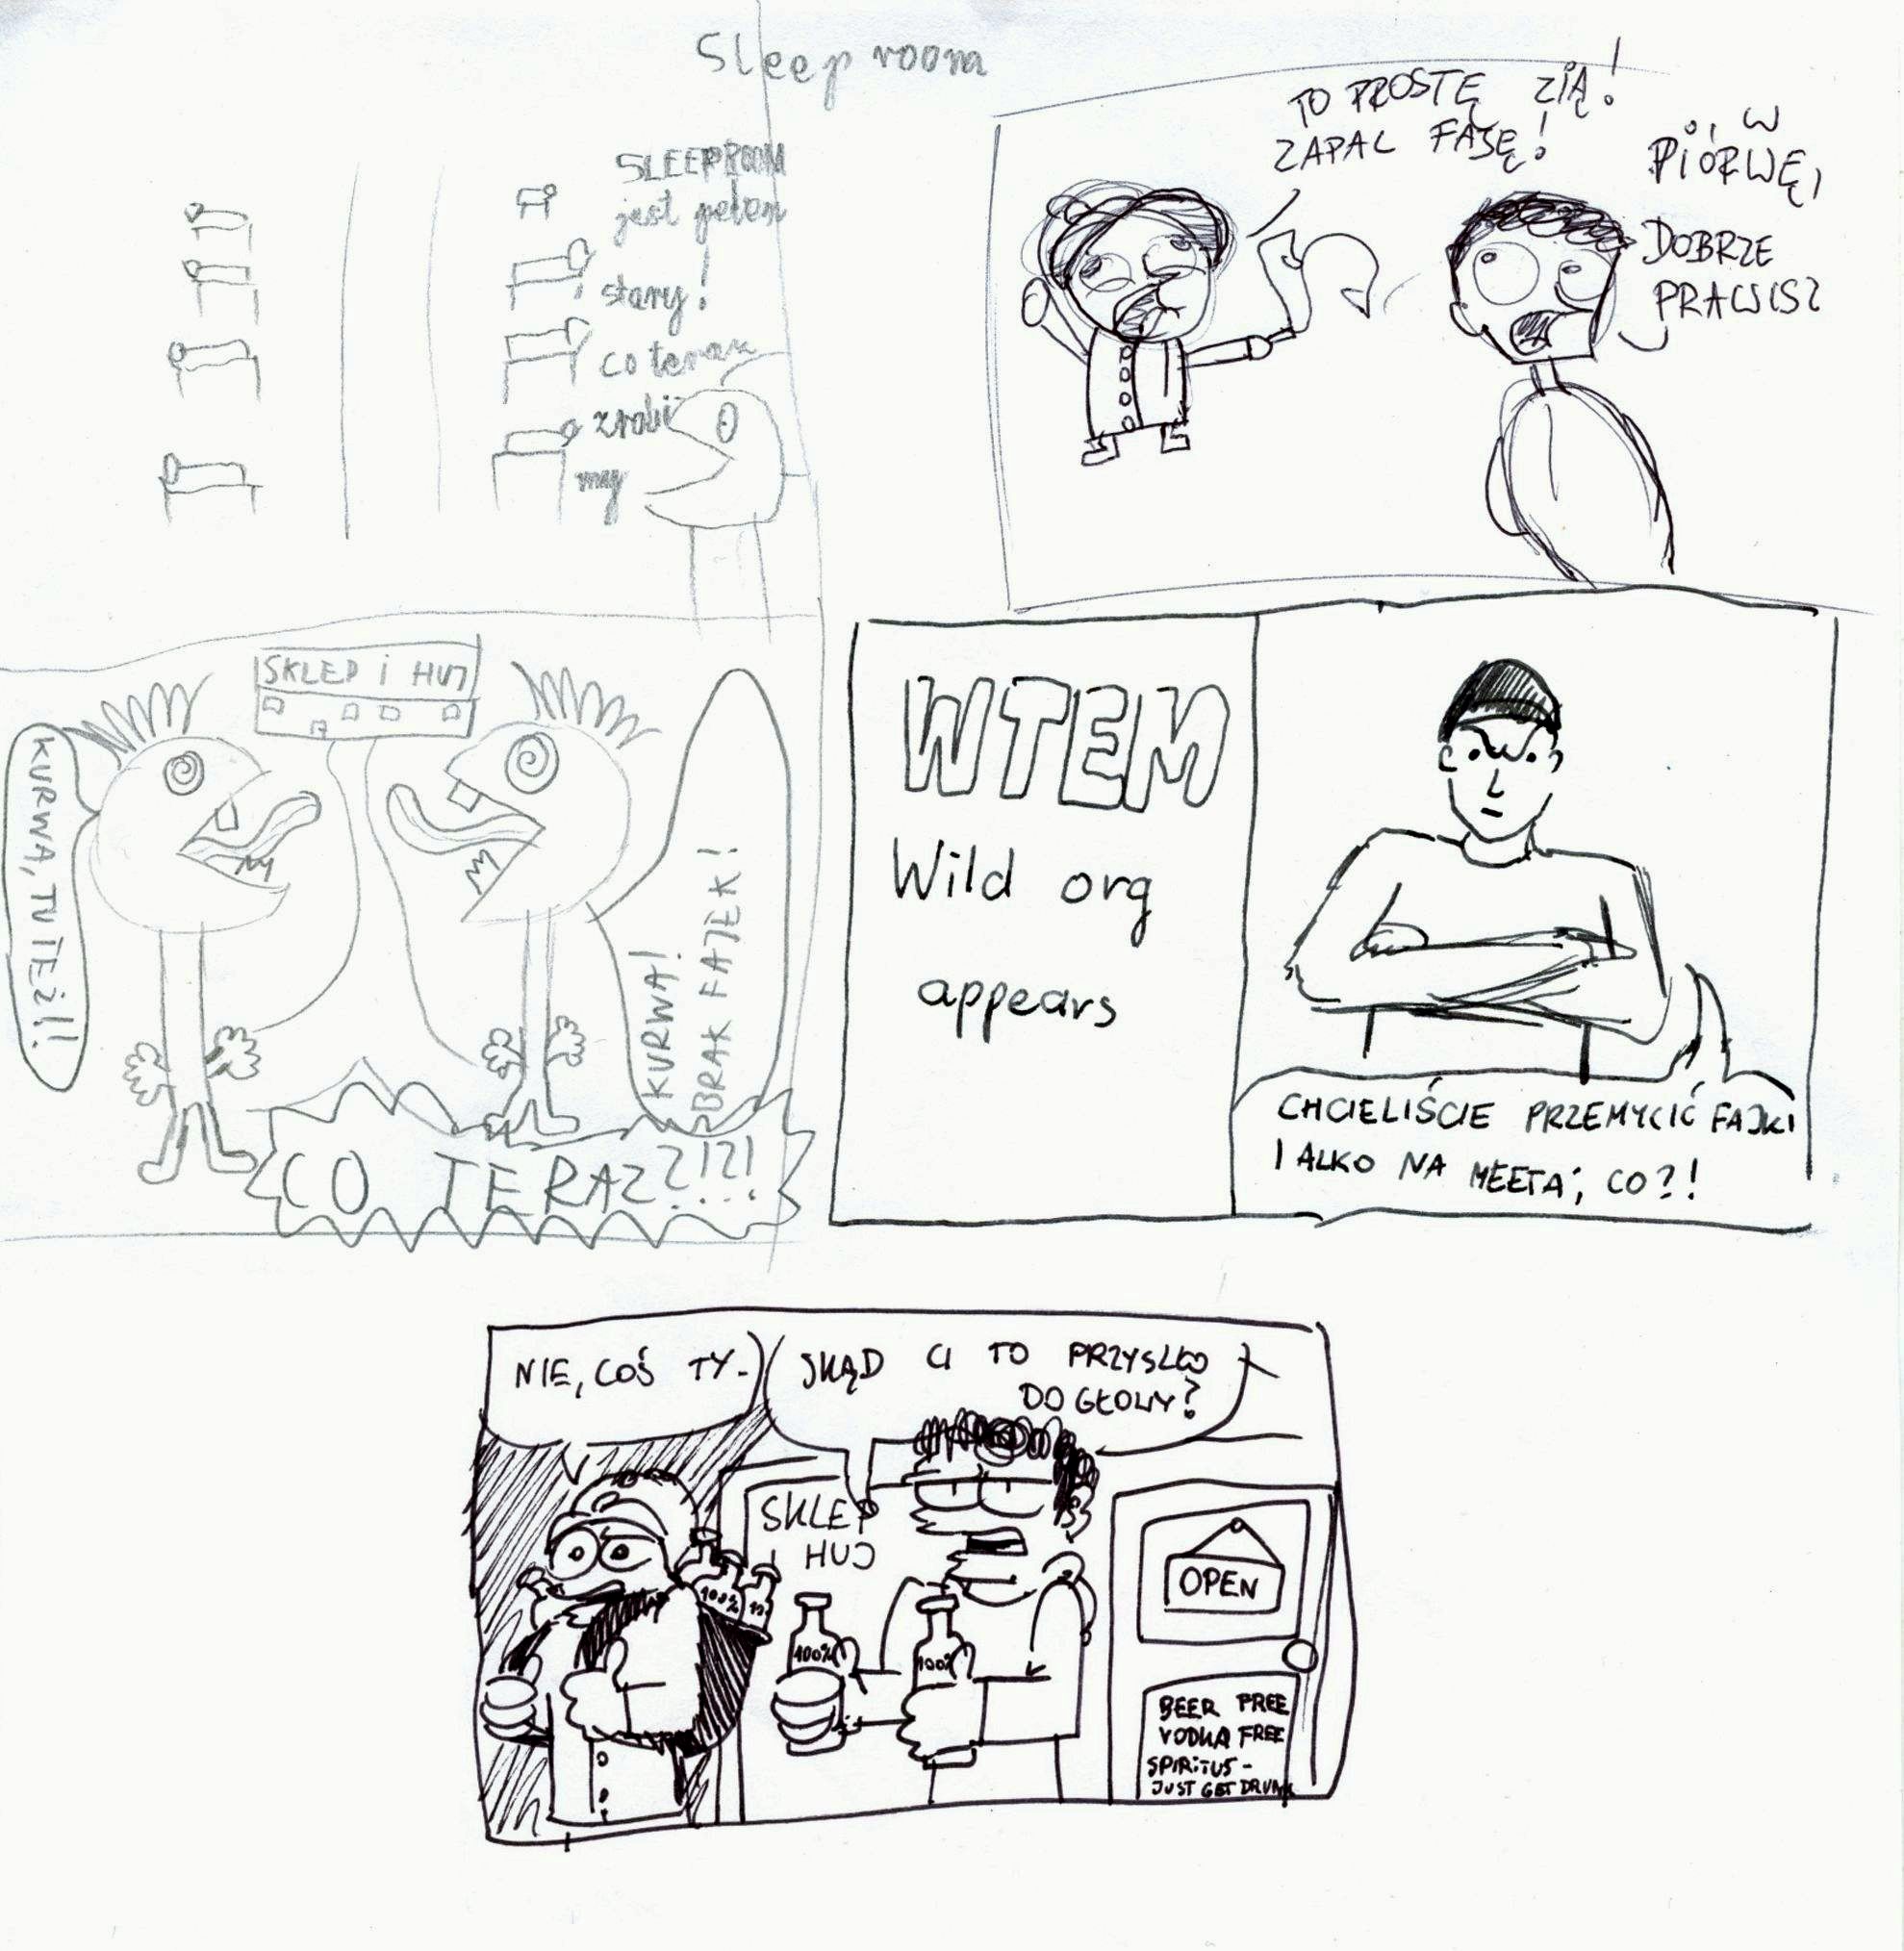 Sleep room
SLEEPROOM
jest pełen
stary!
co teraz
zrobi
my
TO PROSTĘ ZIĄ!
ZAPAL FAJĘ!
O, W
PIÓRWĘ,
DOBRZE
PRAWISZ
SKLEP i HUJ
KURWA, TU TEŻ!!!
KURWA!
BRAK FAJEK!
CO TERAZ?!?!
WTEM
Wild org
appears
CHCIELIŚCIE PRZEMYCIĆ FAJKI
I ALKO NA MEETA, CO?!
NIE, COŚ TY.
SKĄD CI TO PRZYSZŁO
DO GŁOWY?
SKLEP
I HUJ
100%
100%
100%
OPEN
BEER FREE
VODKA FREE
SPIRITUS -
JUST GET DRUNK